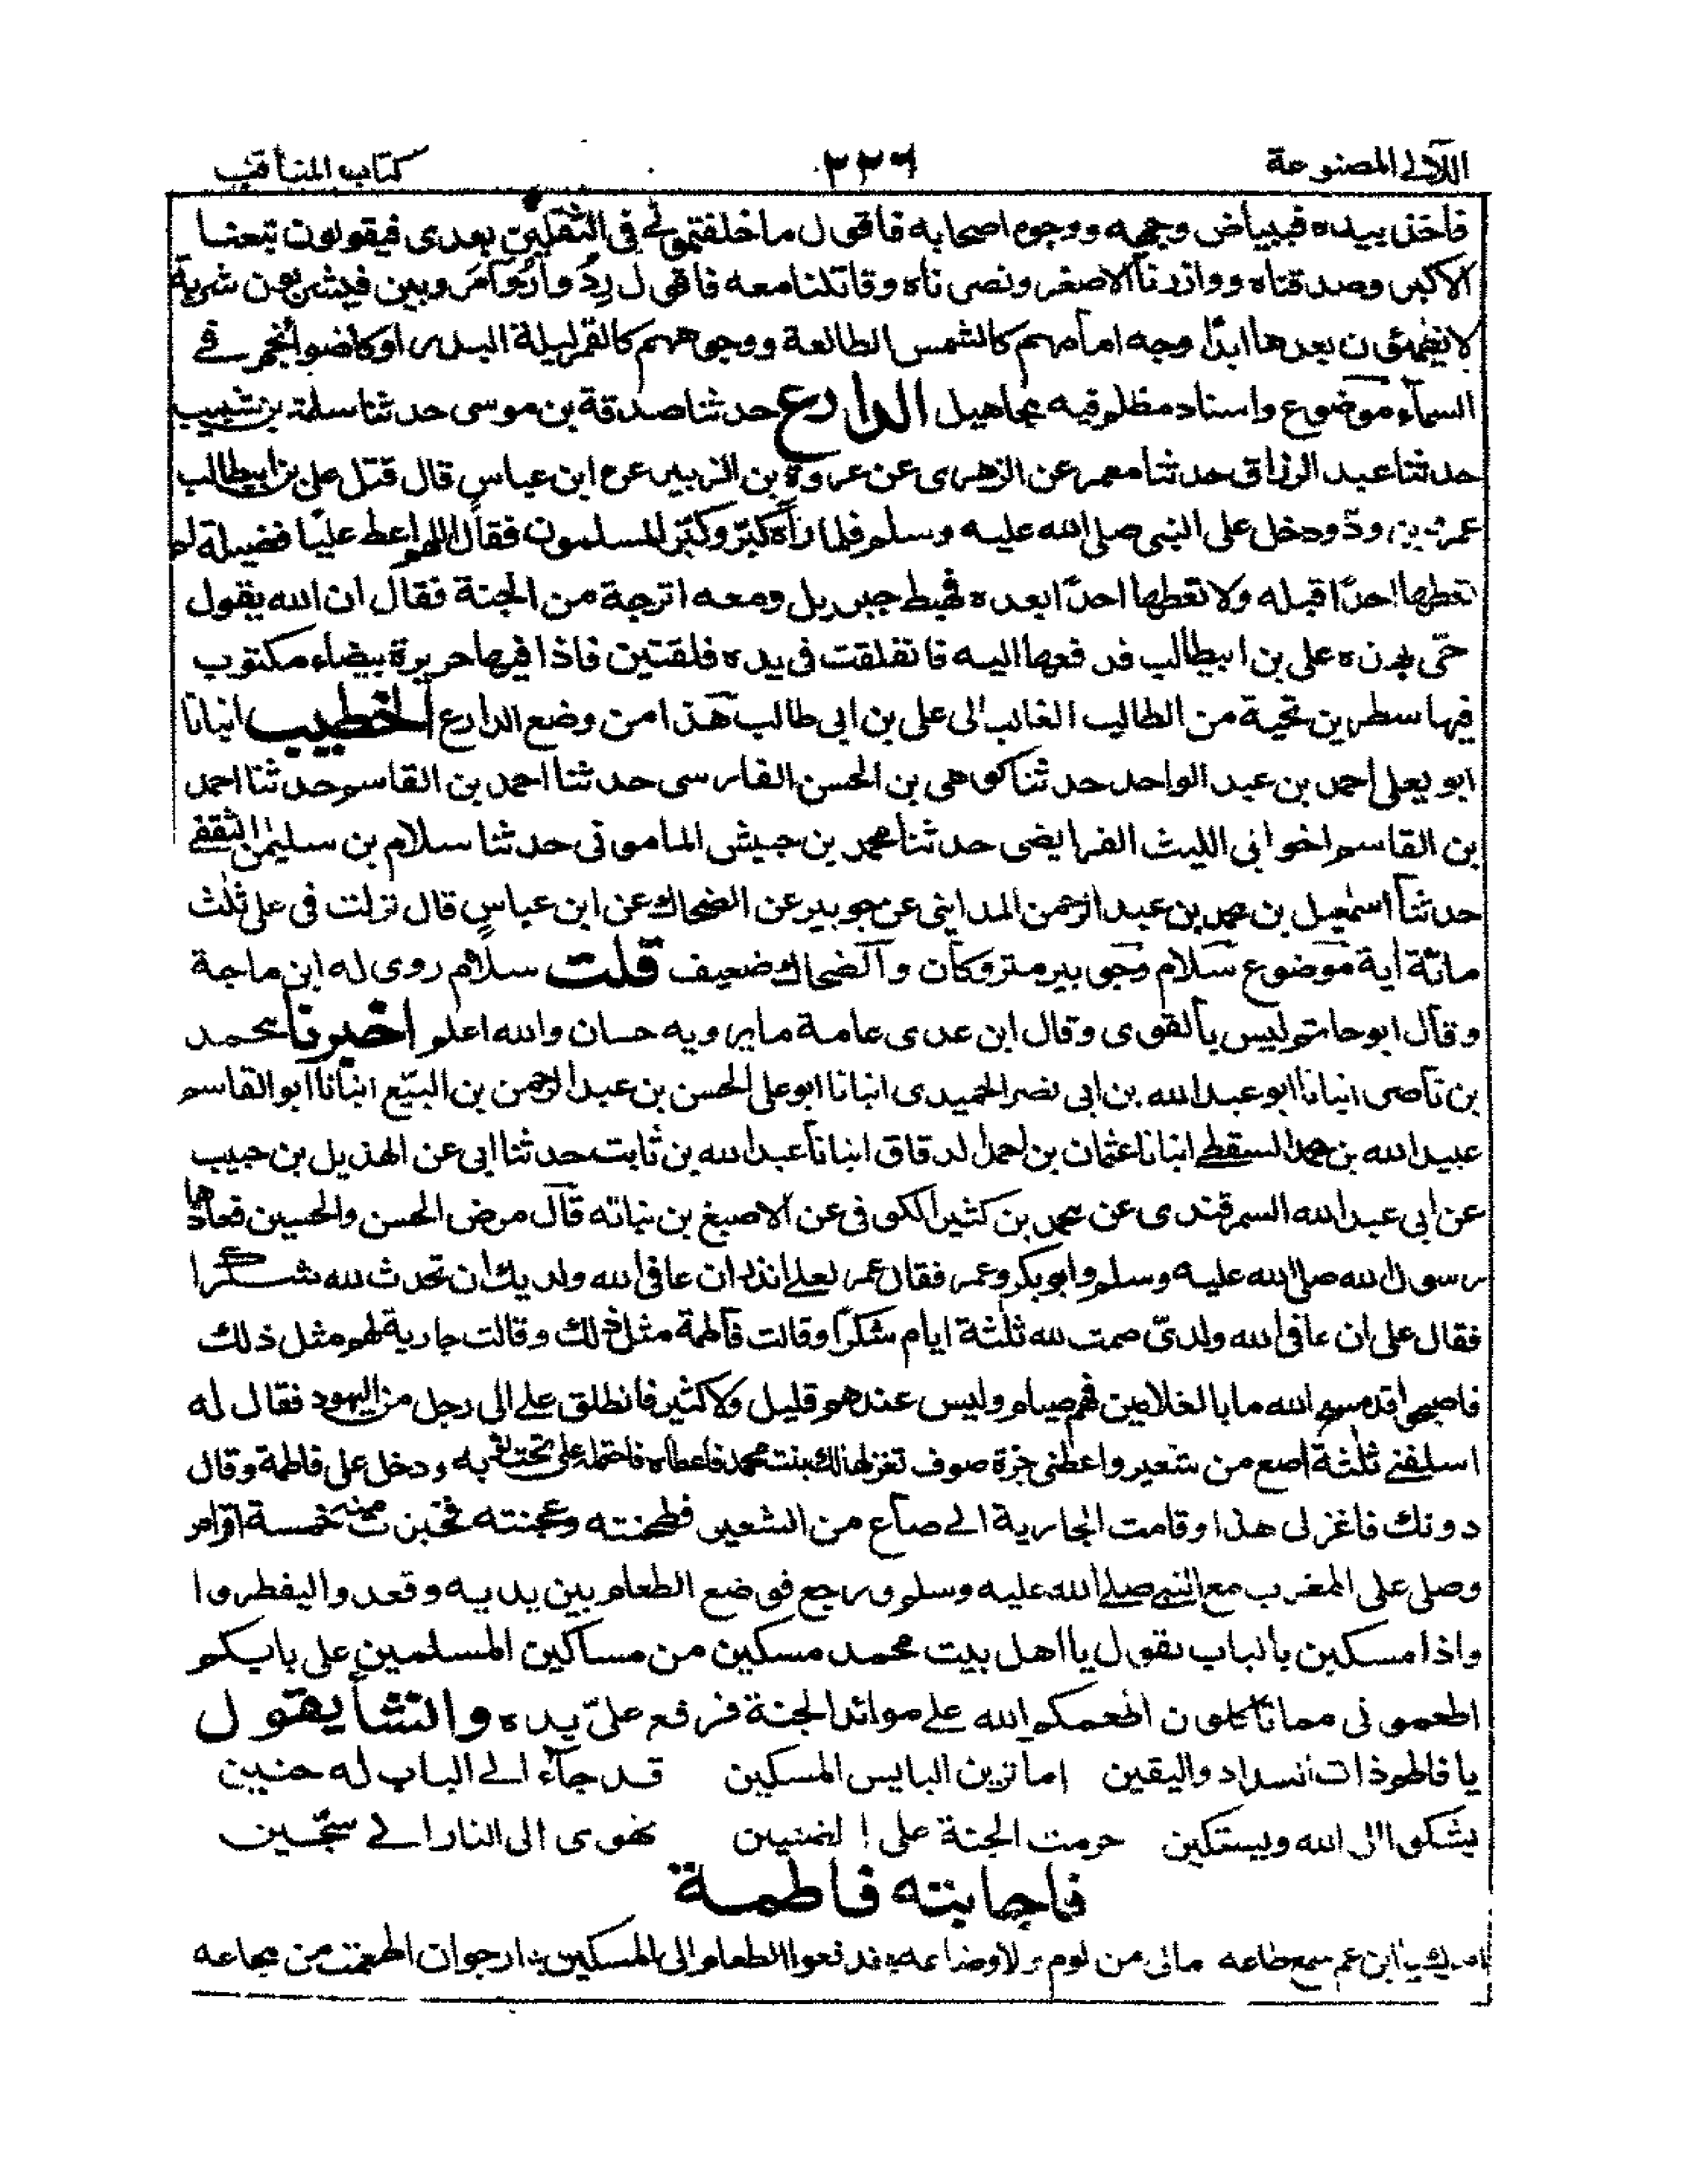 اللآلى المصنوعة ٢٢٦ كتاب المناقب
فاخذ بيده فيبياض وجهه ووجوه اصحابه فاقول ما خلفتمونى فى الثقلين بعدى فيقولون تبعنا
الاكبر وصدقناه ووازرنا الاصغر ونصرناه وقاتلنا معه فاقول رِدُوا رُوآء مَرويين فيشربون شربة
لا يظمئون بعدها ابدًا وجه امامهم كالشمس الطالعة ووجوههم كالقمر ليلة البدر او كاضوء نجم فى
السماء موضوع واسناد مظلم فيه مجاهيل الدارع حدثنا صدقة بن موسى حدثنا سلمة بن شبيب
حدثنا عبد الرزاق حدثنا معمر عن الزهرى عن عروة بن الزبير عن ابن عباس قال قتل على بن ابيطالب
عمرو بن ودّ ودخل على النبى صلى الله عليه وسلم فلما رآه كبّر وكبّر المسلمون فقال اللهم اعط عليًا فضيلة لم
تعطها احدًا قبله ولا تعطها احدًا بعده فهبط جبريل ومعه اترجة من الجنة فقال ان الله يقول
حىّ بهذه على بن ابيطالب فدفعها اليه فانفلقت فى يده فلقتين فاذا فيها حريرة بيضاء مكتوب
فيها سطرين تحية من الطالب الغالب الى على بن ابى طالب هذا من وضع الدارع الخطيب انبانا
ابو يعلى احمد بن عبد الواحد حدثنا كوهى بن الحسن الفارسى حدثنا احمد بن القاسم حدثنا احمد
بن القاسم اخو ابى الليث الفرايضى حدثنا محمد بن حبيش المامونى حدثنا سلام بن سليمٰن الثقفى
حدثنا اسمٰعيل بن محمد بن عبد الرحمن المداينى عن جويبر عن الضحاك عن ابن عباس قال نزلت فى على ثلٰث
مائة اية موضوع سلام وجويبر متروكان والضحاك ضعيف قلت سلام روى له ابن ماجة
وقال ابو حاتم ليس بالقوى وقال ابن عدى عامة مايرويه حسان والله اعلم اخبرنا محمد
بن ناصر انبانا ابو عبد الله بن ابى نصر الحميدى انبانا ابو على الحسن بن عبد الرحمن بن البيّع انبانا ابو القاسم
عبيد الله بن محمد السقطى انبانا عثمان بن احمد الدقاق انبانا عبد الله بن ثابت حدثنا ابى عن الهذيل بن حبيب
عن ابى عبد الله السمرقندى عن محمد بن كثير الكوفى عن الاصبغ بن نباته قال مرض الحسن والحسين فعادهما
رسول الله صلى الله عليه وسلم وابوبكر وعمر فقال عمر لعلى انذر ان عافى الله ولديك ان تحدث لله شكرا
فقال على ان عافى الله ولدىّ صمت لله ثلٰثة ايام شكرًا وقالت فاطمة مثل ذلك وقالت جارية لهم مثل ذلك
فاصبحوا قد مسح الله ما بالغلامين فهم صيام وليس عندهم قليل ولا كثير فانطلق على الى رجل من اليهود فقال له
اسلفنى ثلٰثة اصع من شعير واعطنى جزة صوف تغزلها لك بنت محمد فاعطاه فاحتمله على تحت ثوبه ودخل على فاطمة وقال
دونك فاغزلى هذا وقامت الجارية الى صاع من الشعير فطحنته وعجنته فخبزت منه خمسة اقراص
وصلى على المغرب مع النبى صلى الله عليه وسلم ورجع فوضع الطعام بين يديه وقعدوا ليفطروا
واذا مسكين بالباب يقول يا اهل بيت محمد مسكين من مساكين المسلمين على بابكم
اطعمونى مما تاكلون اطعمكم الله على موائد الجنة فرفع علىّ يده وانشأ يقول
يا فاطم ذات السداد واليقين اما ترين البايس المسكين قد جآء الى الباب له حنين
يشكو الى الله ويستكين حرمت الجنة على الضنين يهوى الى النار الى سجّين
فاجابته فاطمة
امرك يا ابن عم سمع طاعه مالى من لوم ولا وضاعه فدفعوا الطعام الى المسكين ارجو ان اطعمت من مجاعه